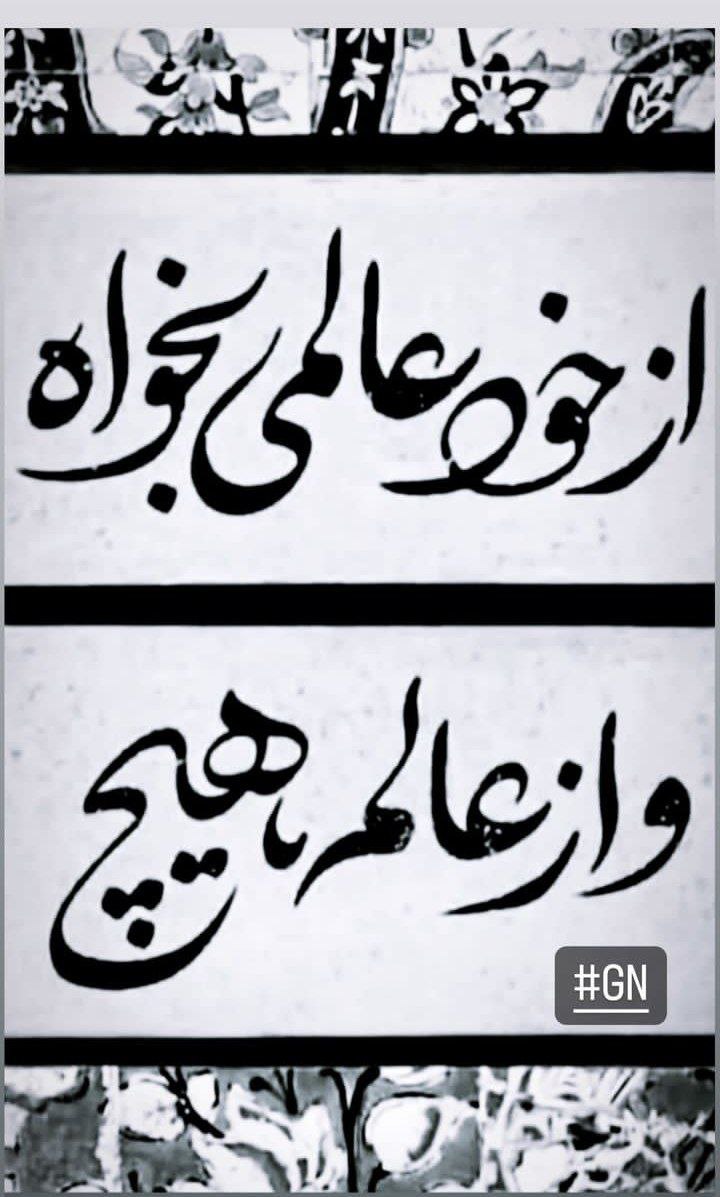 از خود عالمی بخواه
و از عالم هیچ
#GN